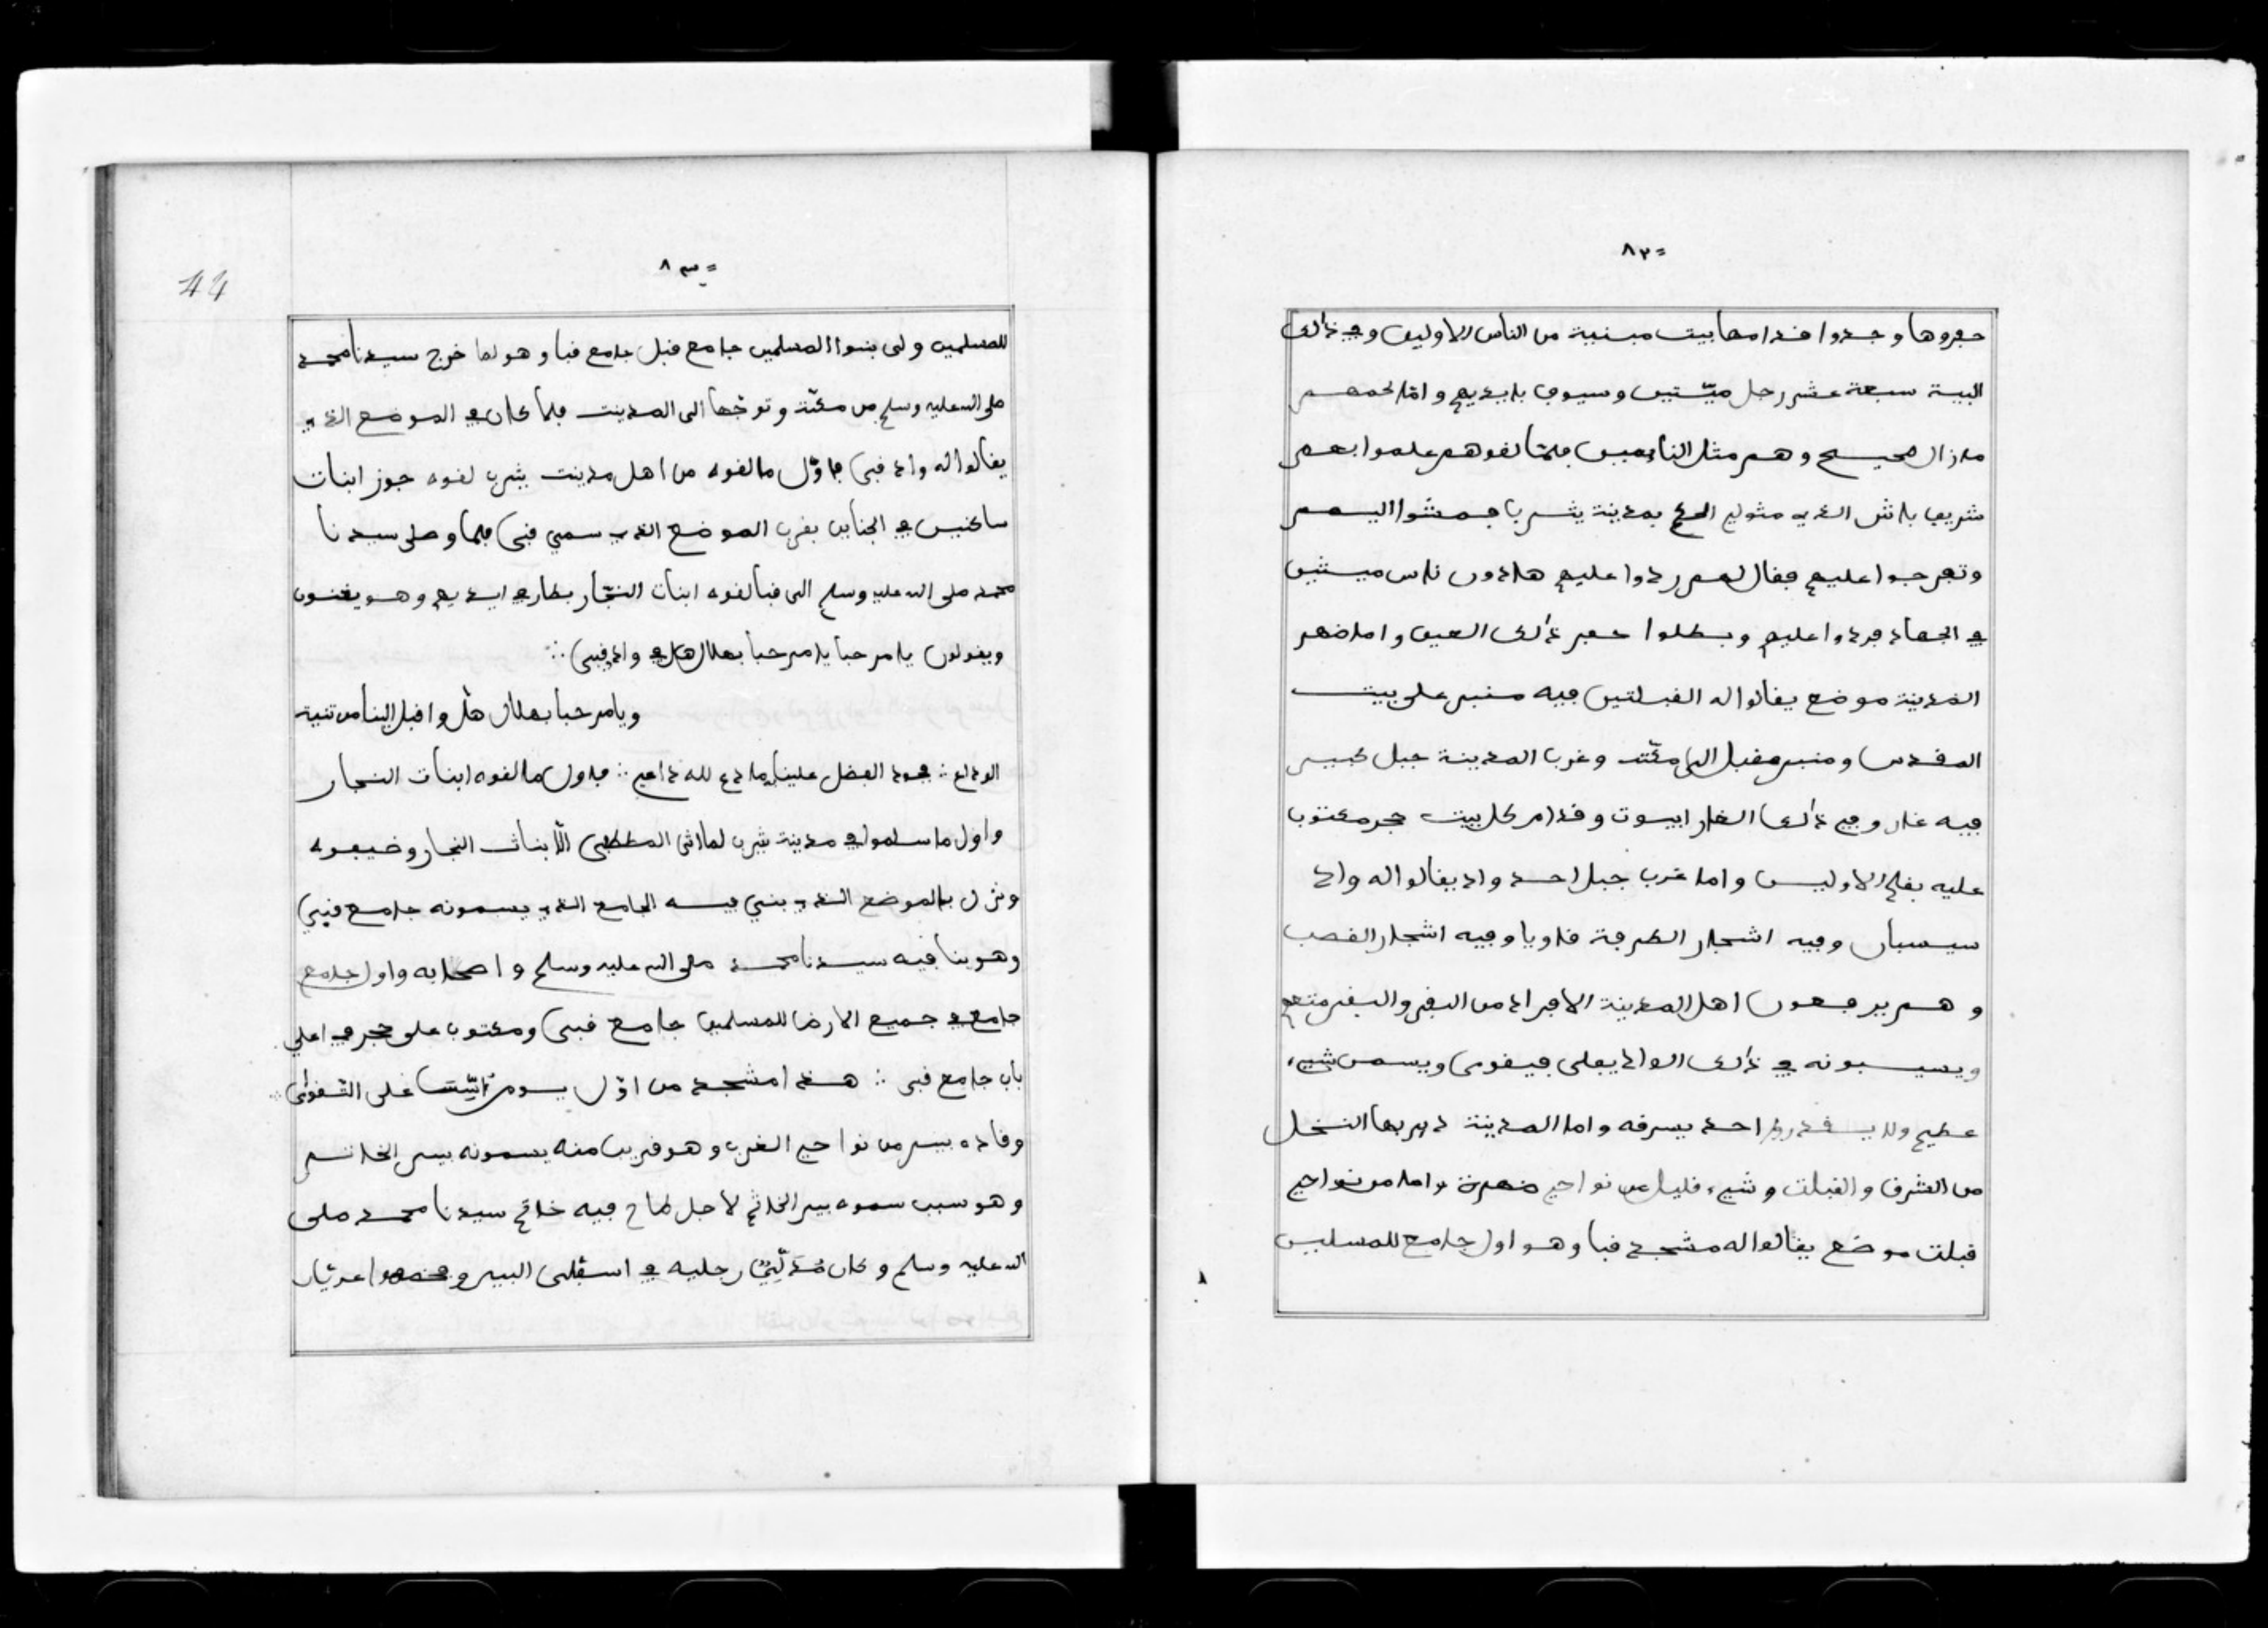 ٨٢=
حفروها وجدوا قدامها بيت مبنية من الناس الاولين وفي ذالك
البية سبعة عشر رجل ميّتين وسيوف بايديهم وامّا لحمهم
مازال صحيح وهم مثل الناعسين فلمّا لقوهم علموا بهم
شريف باش الذي متولي الحكم بمدينة يثرب فمشوا اليهم
وتفرجوا عليهم فقال لهم ردوا عليهم هاذون ناس ميتين
في الجهاد فردوا عليهم وبطلوا حفر ذالك العين واما ضهر
المدينة موضع يقالوا له القبلتين فيه منبر على بيت
المقدس ومنبر مقبل الى مكّة وغرب المدينة جبل كبير
فيه غار وفي ذالك الغار ابيوت وقدام كل بيت حجر مكتوب
عليه بقلم الاولين واما غرب جبل احد واد يقالوا له واد
سيسبان وفيه اشجار الطرفة قاويا وفيه اشجار القصب
وهم يرفعون اهل المدينة الافراد من البقر والبقر متعهم
ويسيبونه في ذالك الواد يعلى فيقوى ويسمن شيء
عظيم ولا يقدروا احد يسرقه واما المدينة داير بها النخل
من الشرق والقبلت وشيء قليل من نواحي ضهرة واما من نواحي
قبلت موضع يقالوا له مشجد قبا وهو اول جامع للمسلمين
٨٣=
44
للمسلمين ولى بنوا المسلمين جامع قبل جامع قبا وهو لما خرج سيدنا محمد
صلى الله عليه وسلم من مكّة وتوجّها الى المدينت فلما كان في الموضع الذي
يقالوا له واد قبى فاوّل ما لقوه من اهل مدينت يثرب لقوه جوز ابنات
ساكنين في الجناين بقرب الموضع الذي سمي قبى فلما وصلى سيدنا
محمد صلى الله عليه وسلم الى قبا لقوه ابنات النجّار بطار في ايديهم وهو يغنون
ويقولون يا مرحبا يا مرحبا بهلال هل في واد قبى ∴
ويا مرحبا بهلال هلّ واقبل الينا من تنية
الوداع ∴ فجود الفضل علينا ما دع لله داعي ∴ فاول ما لقوه ابنات النجار
واول ما سلموا في مدينة يثرب لما اتى المطبى الّا بنات النجار وضيفوه
ونزل بالموضع الذي بني فيه الجامع الذي يسمونه جامع قبى
وهو بنا فيه سيدنا محمد صلى الله عليه وسلم واصحابه واول جامع
جامع في جميع الارض للمسلمين جامع قبى ومكتوب على حجر في اعلى
باب جامع قبى ∴ هذا مشجد من اوّل يوم اتّيت على التقوى ∴
وقاده بير من نواحي الغرب وهو قريب منه يسمونه بير الخاتم
وهو سبب سموه بير الخاتم لاجل طاح فيه خاتم سيدنا محمد صلى
الله عليه وسلم وكان مدلّي رجليه في اسفلى البير